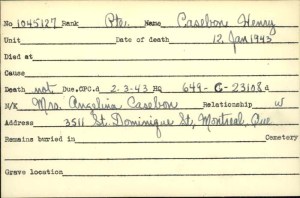 No 1045127 Rank Pte. Name Casebon Henry
Unit Date of death 12 Jan 1943
Died at
Cause
Death not Due.CPC.d 2-3-43 HQ 649-C-23108
N/K Mrs. Angelina Casebon Relationship w
Address 3511 St. Dominique St, Montreal, Que
Remains buried in Cemetery
Grave location